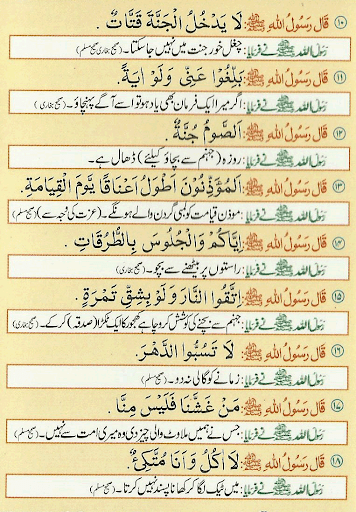 ۱۰ قَالَ رَسُوْلُ اللهِ ﷺ: لَا يَدْخُلُ الْجَنَّةَ قَتَّاتٌ.
رسول اللہ ﷺ نے فرمایا: چغل خور جنت میں نہیں جا سکتا۔ (صحیح بخاری، صحیح مسلم)
۱۱ قَالَ رَسُوْلُ اللهِ ﷺ: بَلِّغُوْا عَنِّىْ وَلَوْ اٰيَةً.
رسول اللہ ﷺ نے فرمایا: اگر میرا ایک فرمان بھی یاد ہو تو اسے آگے پہنچاؤ۔ (صحیح بخاری)
۱۲ قَالَ رَسُوْلُ اللهِ ﷺ: اَلصَّوْمُ جُنَّةٌ.
رسول اللہ ﷺ نے فرمایا: روزہ (جہنم سے بچاؤ کیلئے) ڈھال ہے۔
۱۳ قَالَ رَسُوْلُ اللهِ ﷺ: اَلْمُؤَذِّنُوْنَ اَطْوَلُ اَعْنَاقًا يَّوْمَ الْقِيَامَةِ.
رسول اللہ ﷺ نے فرمایا: موذن قیامت کو لمبی گردن والے ہونگے۔ (عزت کی وجہ سے) (صحیح مسلم)
۱۴ قَالَ رَسُوْلُ اللهِ ﷺ: اِيَّاكُمْ وَالْجُلُوْسَ بِالطُّرُقَاتِ.
رسول اللہ ﷺ نے فرمایا: راستوں پر بیٹھنے سے بچو۔ (صحیح بخاری)
۱۵ قَالَ رَسُوْلُ اللهِ ﷺ: اِتَّقُوا النَّارَ وَلَوْ بِشِقِّ تَمْرَةٍ.
رسول اللہ ﷺ نے فرمایا: جہنم سے بچنے کی کوشش کرو چاہے کھجور کا ایک ٹکڑا (صدقہ) کر کے۔ (صحیح بخاری)
۱۶ قَالَ رَسُوْلُ اللهِ ﷺ: لَا تَسُبُّوا الدَّهْرَ.
رسول اللہ ﷺ نے فرمایا: زمانے کو گالی نہ دو۔ (صحیح مسلم)
۱۷ قَالَ رَسُوْلُ اللهِ ﷺ: مَنْ غَشَّنَا فَلَيْسَ مِنَّا.
رسول اللہ ﷺ نے فرمایا: جس نے ہمیں ملاوٹ والی چیز دی وہ میری امت سے نہیں۔ (صحیح مسلم)
۱۸ قَالَ رَسُوْلُ اللهِ ﷺ: لَا اٰكُلُ وَاَنَا مُتَّكِئٌ.
رسول اللہ ﷺ نے فرمایا: میں ٹیک لگا کر کھانا پسند نہیں کرتا۔ (صحیح مسلم)